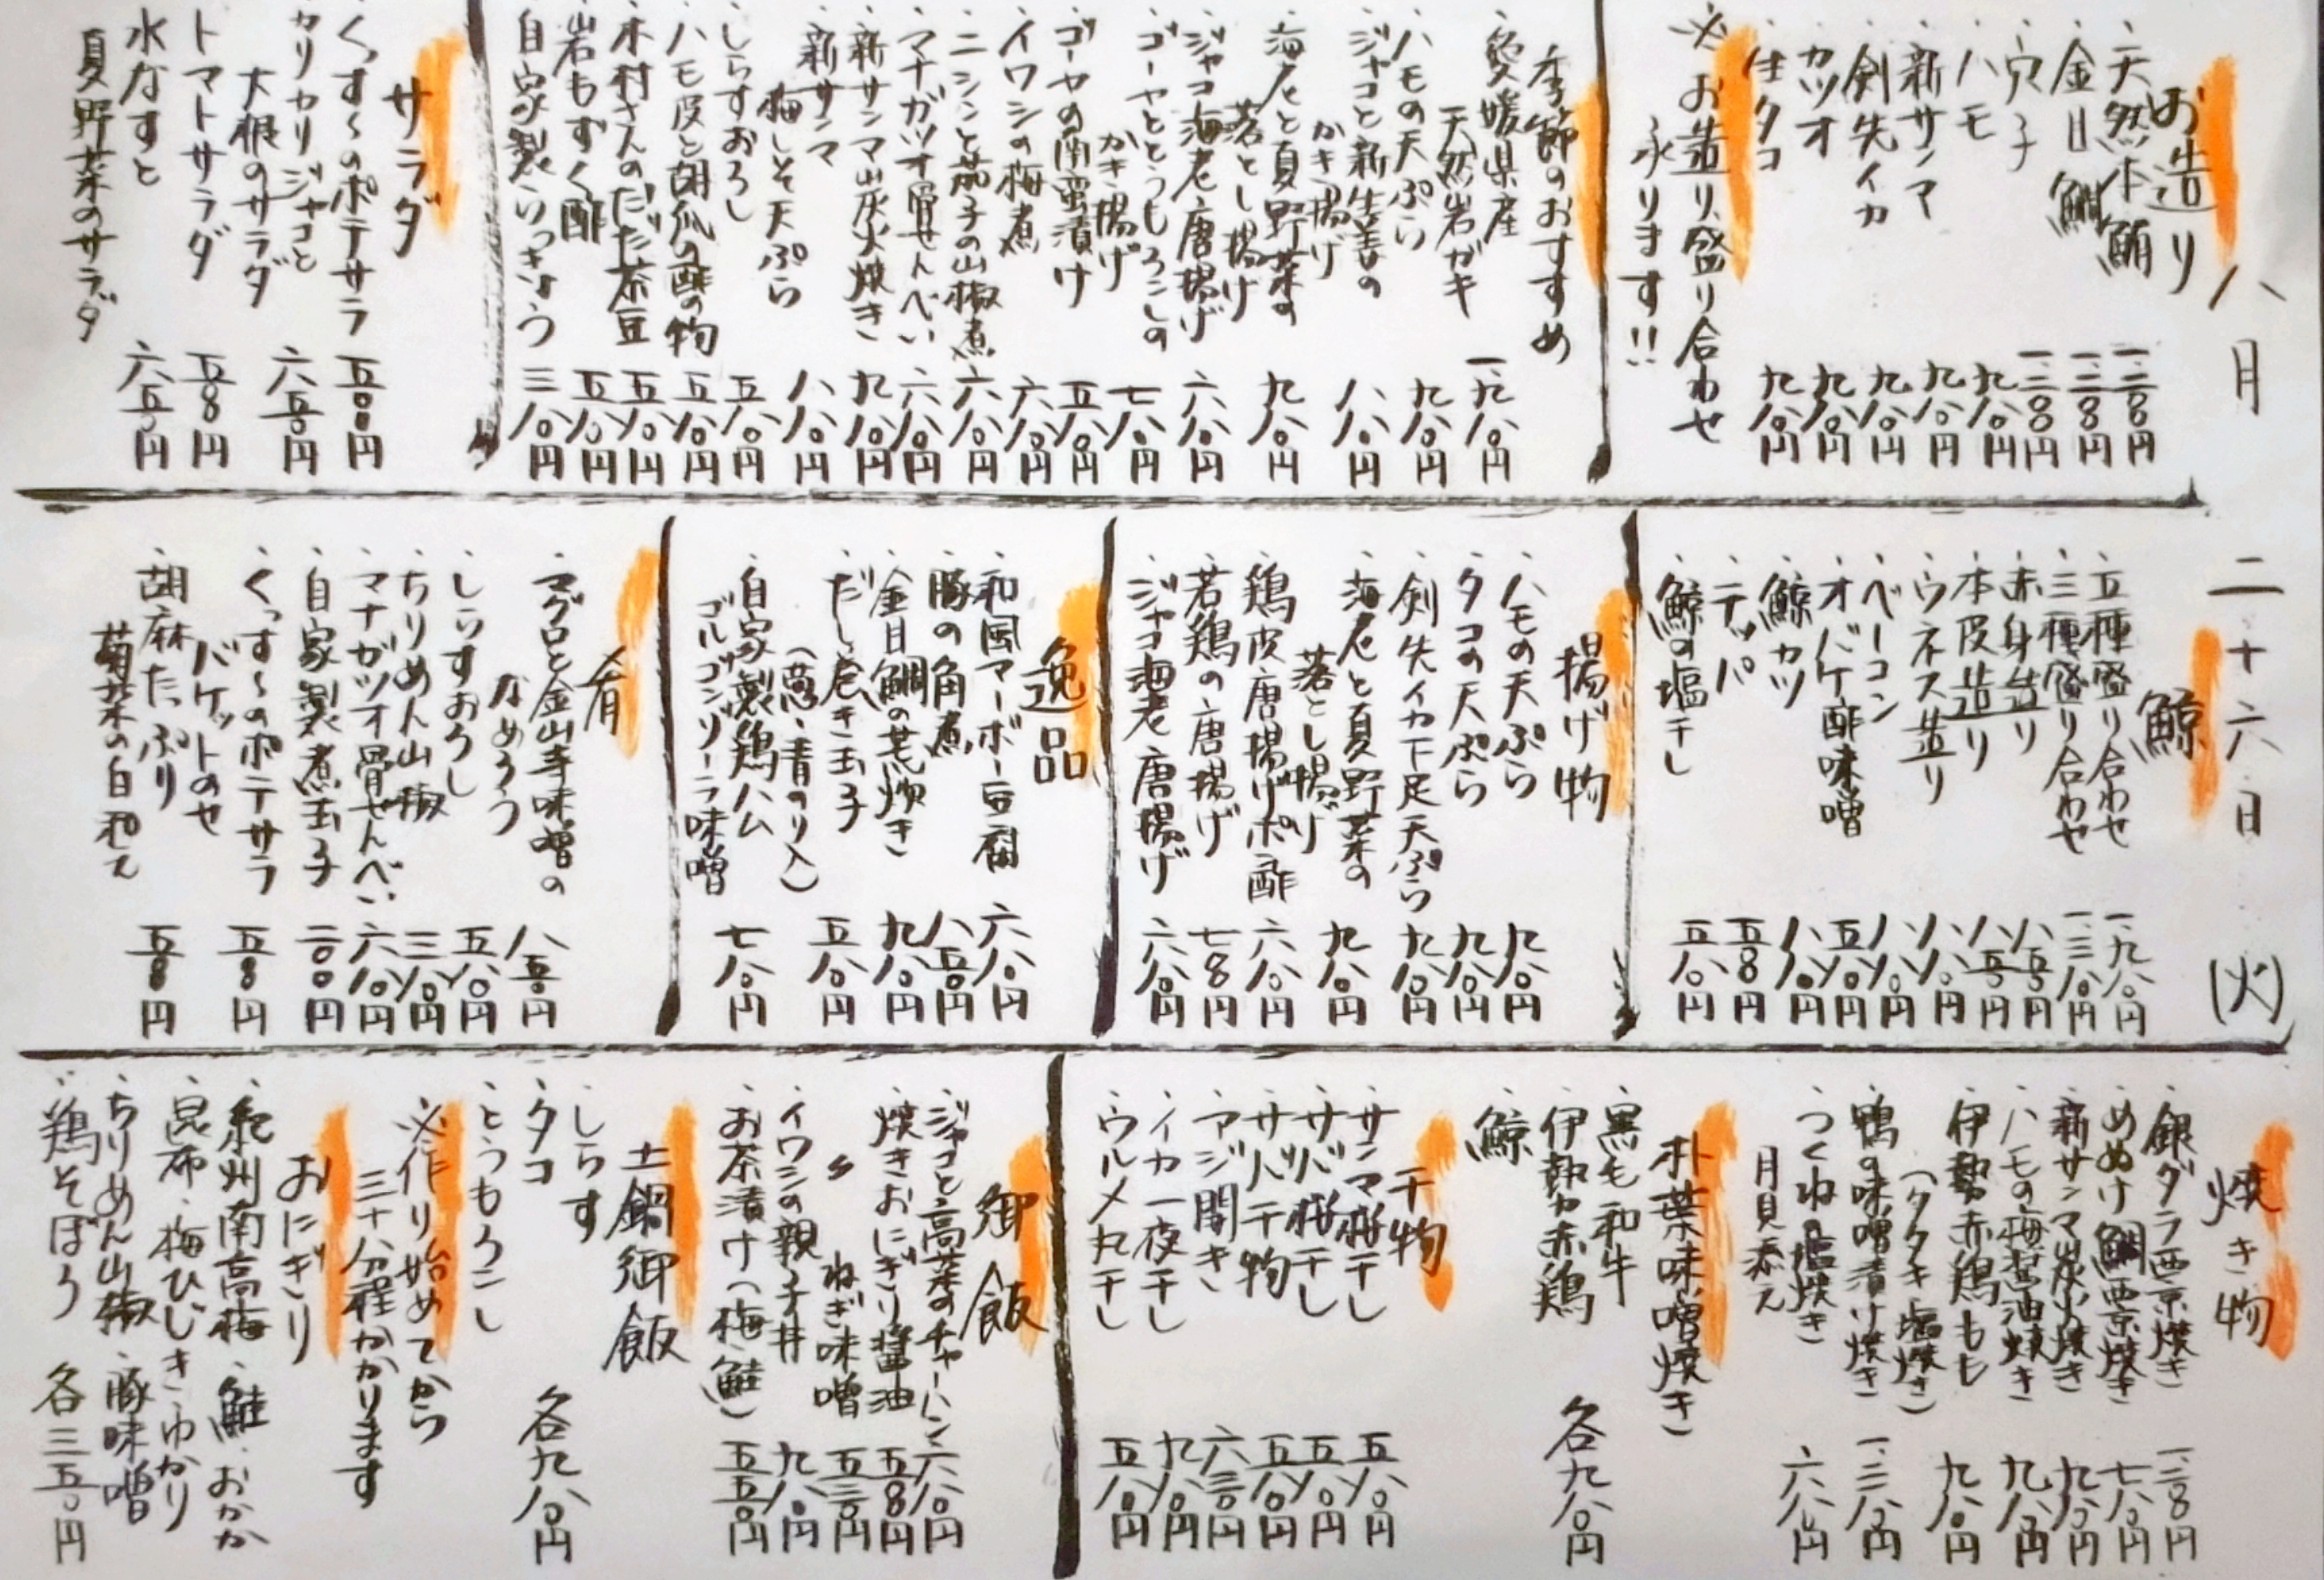 八月 二十六日 (火)
お造り
・天然本鮪 一、三〇〇円
・金目鯛 一、三〇〇円
・穴子 一、三〇〇円
・ハモ 九八〇円
・新サンマ 九八〇円
・剣先イカ 九八〇円
・カツオ 九八〇円
・生タコ 九八〇円
※お造り盛り合わせ
承ります!!
季節のおすすめ
・愛媛県産
天然岩ガキ 一、九八〇円
・ハモの天ぷら 九八〇円
・ジャコと新生姜の
かき揚げ 八八〇円
・海老と夏野菜の
落とし揚げ 九八〇円
・ジャコ海老唐揚げ 六八〇円
・ゴーヤととうもろこしの
かき揚げ 七八〇円
・ゴーヤの南蛮漬け 五八〇円
・イワシの梅煮 六八〇円
・ニシンと茄子の山椒煮 六八〇円
・マナガツオ骨せんべい 六八〇円
・新サンマ炭火焼き 九八〇円
・新サンマ
梅しそ天ぷら 八八〇円
・しらすおろし 五八〇円
・ハモ皮と胡瓜の酢の物 五八〇円
・木村さんのだだ茶豆 五八〇円
・岩もずく酢 五八〇円
・自家製らっきょう 三八〇円
サラダ
・くっすぅのポテサラ 五〇〇円
・カリカリジャコと
大根のサラダ 六五〇円
・トマトサラダ 五〇〇円
・水なすと
夏野菜のサラダ 六五〇円
鯨
・五種盛り合わせ 一、九八〇円
・三種盛り合わせ 一、三八〇円
・赤身造り 八五〇円
・本皮造り 八五〇円
・ウネス造り 八八〇円
・ベーコン 八八〇円
・オバケ酢味噌 五八〇円
・鯨カツ 八八〇円
・テッパ 五〇〇円
・鯨の塩干し 五八〇円
揚げ物
・ハモの天ぷら 九八〇円
・タコの天ぷら 九八〇円
・剣先イカ下足天ぷら 九八〇円
・海老と夏野菜の
落とし揚げ 九八〇円
・鶏皮唐揚げポン酢 六八〇円
・若鶏の唐揚げ 七〇〇円
・ジャコ海老唐揚げ 六八〇円
逸品
・和風マーボー豆腐 六八〇円
・豚の角煮 八五〇円
・金目鯛の荒炊き 九八〇円
・だし巻き玉子
(葱・青のり入) 五八〇円
・自家製鶏ハム
ゴルゴンゾーラ味噌 七八〇円
肴
・マグロと金山寺味噌の
なめろう 八五〇円
・しらすおろし 五八〇円
・ちりめん山椒 三八〇円
・マナガツオ骨せんべい 六八〇円
・自家製煮玉子 二〇〇円
・くっすぅのポテサラ
バケットのせ 五〇〇円
・胡麻たっぷり
菊菜の白和え 五〇〇円
焼き物
・銀ダラ西京焼き 一、三〇〇円
・めぬけ鯛西京焼き 七八〇円
・新サンマ炭火焼き 九八〇円
・ハモの梅醤油焼き 九八〇円
・伊勢赤鶏もも
(タタキ・塩焼き) 九八〇円
・鴨の味噌漬け焼き 一、三八〇円
・つくねの塩焼き
月見添え 六八〇円
朴葉味噌焼き
・黒毛和牛
・伊勢赤鶏 各九八〇円
・鯨
干物
・サンマ桜干し 五八〇円
・サバ桜干し 五八〇円
・サバ干物 五八〇円
・アジ開き 六三〇円
・イカ一夜干し 九八〇円
・ウルメ丸干し 五八〇円
御飯
・ジャコと高菜のチャーハン 六八〇円
・焼きおにぎり醤油 五〇〇円
・〃 ねぎ味噌 五三〇円
・イワシの親子丼 九八〇円
・お茶漬け(梅・鮭) 五五〇円
土鍋御飯
・しらす
・タコ 各九八〇円
・とうもろこし
※作り始めてから
三十分程かかります
おにぎり
・紀州南高梅・鮭・おかか
・昆布・梅ひじき・ゆかり
・ちりめん山椒・豚味噌
・鶏そぼろ 各三五〇円